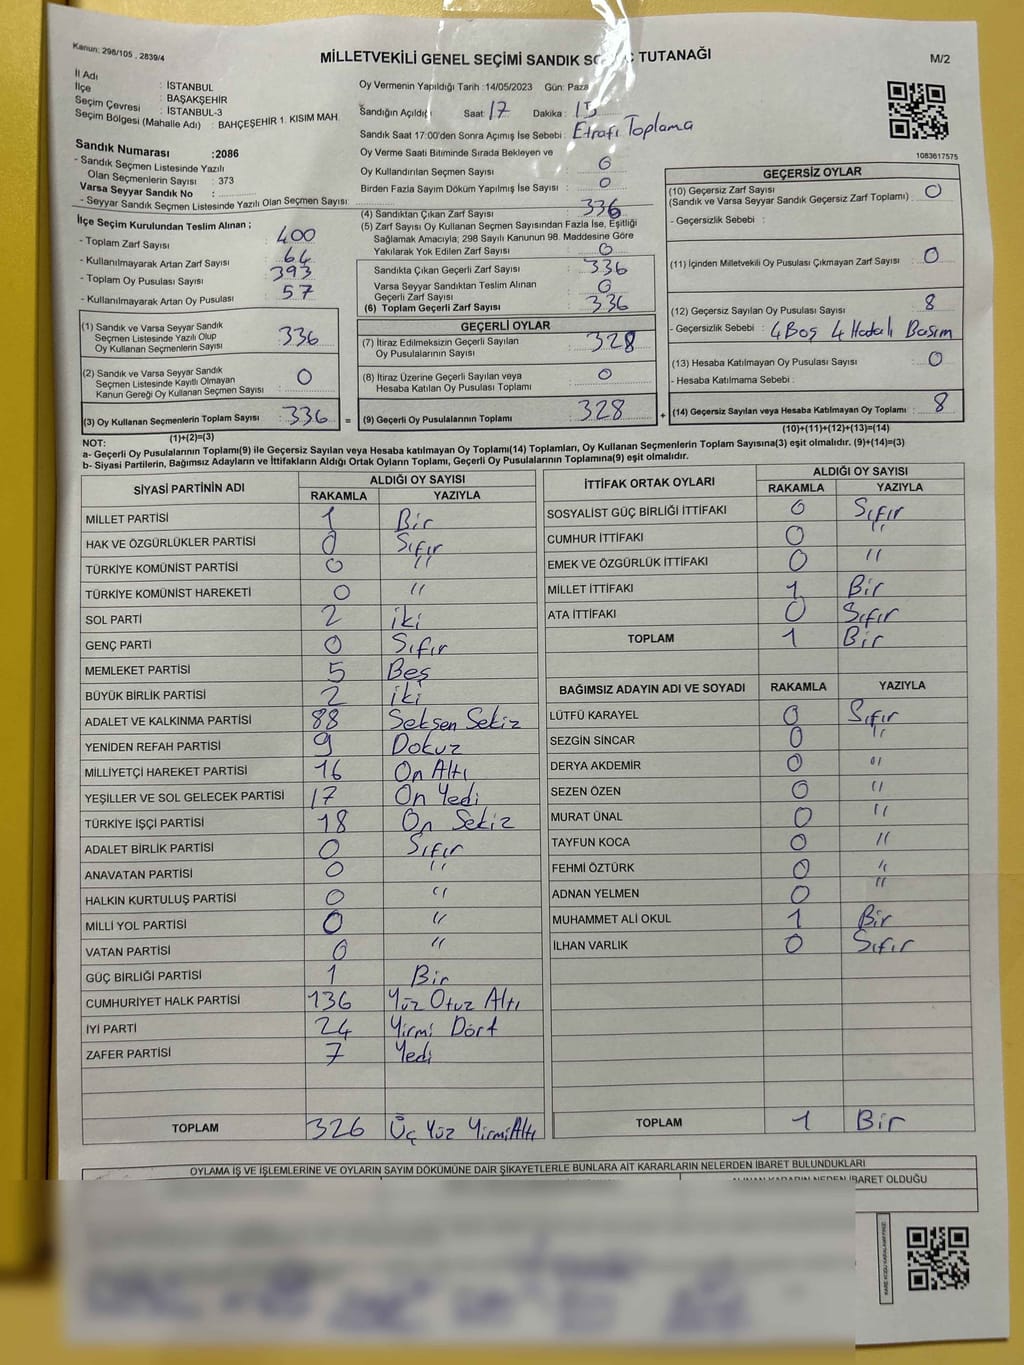 Kanun: 298/105 , 2839/4
MİLLETVEKİLİ GENEL SEÇİMİ SANDIK TUTANAĞI
M/2
İl Adı : İSTANBUL
İlçe : BAŞAKŞEHİR
Seçim Çevresi : İSTANBUL-3
Seçim Bölgesi (Mahalle Adı) : BAHÇEŞEHİR 1. KISIM MAH.
Sandık Numarası :2086
- Sandık Seçmen Listesinde Yazılı
Olan Seçmenlerin Sayısı : 373
Varsa Seyyar Sandık No :
- Seyyar Sandık Seçmen Listesinde Yazılı Olan Seçmen Sayısı:
Oy Vermenin Yapıldığı Tarih :14/05/2023 Gün: Paza
Sandığın Açıldığı Saat: 17 Dakika : 15
Sandık Saat 17:00'den Sonra Açımış İse Sebebi : Etrafı Toplama
Oy Verme Saati Bitiminde Sırada Bekleyen ve
Oy Kullandırılan Seçmen Sayısı : 0
Birden Fazla Sayım Döküm Yapılmış İse Sayısı : 0
1083617575
İlçe Seçim Kurulundan Teslim Alınan ;
- Toplam Zarf Sayısı : 400
- Kullanılmayarak Artan Zarf Sayısı : 64
- Toplam Oy Pusulası Sayısı : 393
- Kullanılmayarak Artan Oy Pusulası : 57
(1) Sandık ve Varsa Seyyar Sandık
Seçmen Listesinde Yazılı Olup
Oy Kullanan Seçmenlerin Sayısı : 336
(2) Sandık ve Varsa Seyyar Sandık
Seçmen Listesinde Kayıtlı Olmayan
Kanun Gereği Oy Kullanan Seçmen Sayısı : 0
(3) Oy Kullanan Seçmenlerin Toplam Sayısı : 336 =
(1)+(2)=(3)
(4) Sandıktan Çıkan Zarf Sayısı : 336
(5) Zarf Sayısı Oy Kullanan Seçmen Sayısından Fazla İse, Eşitliği
Sağlamak Amacıyla; 298 Sayılı Kanunun 98. Maddesine Göre
Yakılarak Yok Edilen Zarf Sayısı : 0
Sandıkta Çıkan Geçerli Zarf Sayısı : 336
Varsa Seyyar Sandıktan Teslim Alınan
Geçerli Zarf Sayısı : 0
(6) Toplam Geçerli Zarf Sayısı : 336
GEÇERLİ OYLAR
(7) İtiraz Edilmeksizin Geçerli Sayılan
Oy Pusulalarının Sayısı : 328
(8) İtiraz Üzerine Geçerli Sayılan veya
Hesaba Katılan Oy Pusulası Toplamı : 0
(9) Geçerli Oy Pusulalarının Toplamı : 328 +
GEÇERSİZ OYLAR
(10) Geçersiz Zarf Sayısı
(Sandık ve Varsa Seyyar Sandık Geçersiz Zarf Toplamı) : 0
- Geçersizlik Sebebi :
(11) İçinden Milletvekili Oy Pusulası Çıkmayan Zarf Sayısı : 0
(12) Geçersiz Sayılan Oy Pusulası Sayısı : 8
- Geçersizlik Sebebi : 4 Boş 4 Hatalı Basım
(13) Hesaba Katılmayan Oy Pusulası Sayısı : 0
- Hesaba Katılmama Sebebi :
(14) Geçersiz Sayılan veya Hesaba Katılmayan Oy Toplamı : 8
(10)+(11)+(12)+(13)=(14)
NOT:
a- Geçerli Oy Pusulalarının Toplamı(9) ile Geçersiz Sayılan veya Hesaba katılmayan Oy Toplamı(14) Toplamları, Oy Kullanan Seçmenlerin Toplam Sayısına(3) eşit olmalıdır. (9)+(14)=(3)
b- Siyasi Partilerin, Bağımsız Adayların ve İttifakların Aldığı Ortak Oyların Toplamı, Geçerli Oy Pusulalarının Toplamına(9) eşit olmalıdır.
SİYASİ PARTİNİN ADI ALDIĞI OY SAYISI
RAKAMLA YAZIYLA
MİLLET PARTİSİ 1 Bir
HAK VE ÖZGÜRLÜKLER PARTİSİ 0 Sıfır
TÜRKİYE KOMÜNİST PARTİSİ 0 "
TÜRKİYE KOMÜNİST HAREKETİ 0 "
SOL PARTİ 2 iki
GENÇ PARTİ 0 Sıfır
MEMLEKET PARTİSİ 5 Beş
BÜYÜK BİRLİK PARTİSİ 2 iki
ADALET VE KALKINMA PARTİSİ 88 Seksen Sekiz
YENİDEN REFAH PARTİSİ 9 Dokuz
MİLLİYETÇİ HAREKET PARTİSİ 16 On Altı
YEŞİLLER VE SOL GELECEK PARTİSİ 17 On Yedi
TÜRKİYE İŞÇİ PARTİSİ 18 On Sekiz
ADALET BİRLİK PARTİSİ 0 Sıfır
ANAVATAN PARTİSİ 0 "
HALKIN KURTULUŞ PARTİSİ 0 "
MİLLİ YOL PARTİSİ 0 "
VATAN PARTİSİ 0 "
GÜÇ BİRLİĞİ PARTİSİ 1 Bir
CUMHURİYET HALK PARTİSİ 136 Yüz Otuz Altı
İYİ PARTİ 24 Yirmi Dört
ZAFER PARTİSİ 7 Yedi
TOPLAM 326 Üç Yüz Yirmi Altı
İTTİFAK ORTAK OYLARI ALDIĞI OY SAYISI
RAKAMLA YAZIYLA
SOSYALİST GÜÇ BİRLİĞİ İTTİFAKI 0 Sıfır
CUMHUR İTTİFAKI 0 "
EMEK VE ÖZGÜRLÜK İTTİFAKI 0 "
MİLLET İTTİFAKI 1 Bir
ATA İTTİFAKI 0 Sıfır
TOPLAM 1 Bir
BAĞIMSIZ ADAYIN ADI VE SOYADI RAKAMLA YAZIYLA
LÜTFÜ KARAYEL 0 Sıfır
SEZGİN SİNCAR 0 "
DERYA AKDEMİR 0 "
SEZEN ÖZEN 0 "
MURAT ÜNAL 0 "
TAYFUN KOCA 0 "
FEHMİ ÖZTÜRK 0 "
ADNAN YELMEN 0 "
MUHAMMET ALİ OKUL 1 Bir
İLHAN VARLIK 0 Sıfır
TOPLAM 1 Bir
OYLAMA İŞ VE İŞLEMLERİNE VE OYLARIN SAYIM DÖKÜMÜNE DAİR ŞİKAYETLERLE BUNLARA AİT KARARLARIN NELERDEN İBARET BULUNDUKLARI
ALINAN KARARIN NEDEN İBARET OLDUĞU
KARE KODU KARALAMAYINIZ